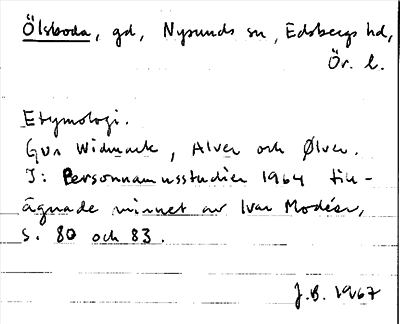 Ölsboda, gd, Nysunds sn, Edsbergs hd,
Ör. l.
Etymologi.
Gun Widmark, Alver och Ølver.
I: Personnamnsstudier 1964 till-
ägnade minnet av Ivar Modéer,
s. 80 och 83.
J.B. 1967